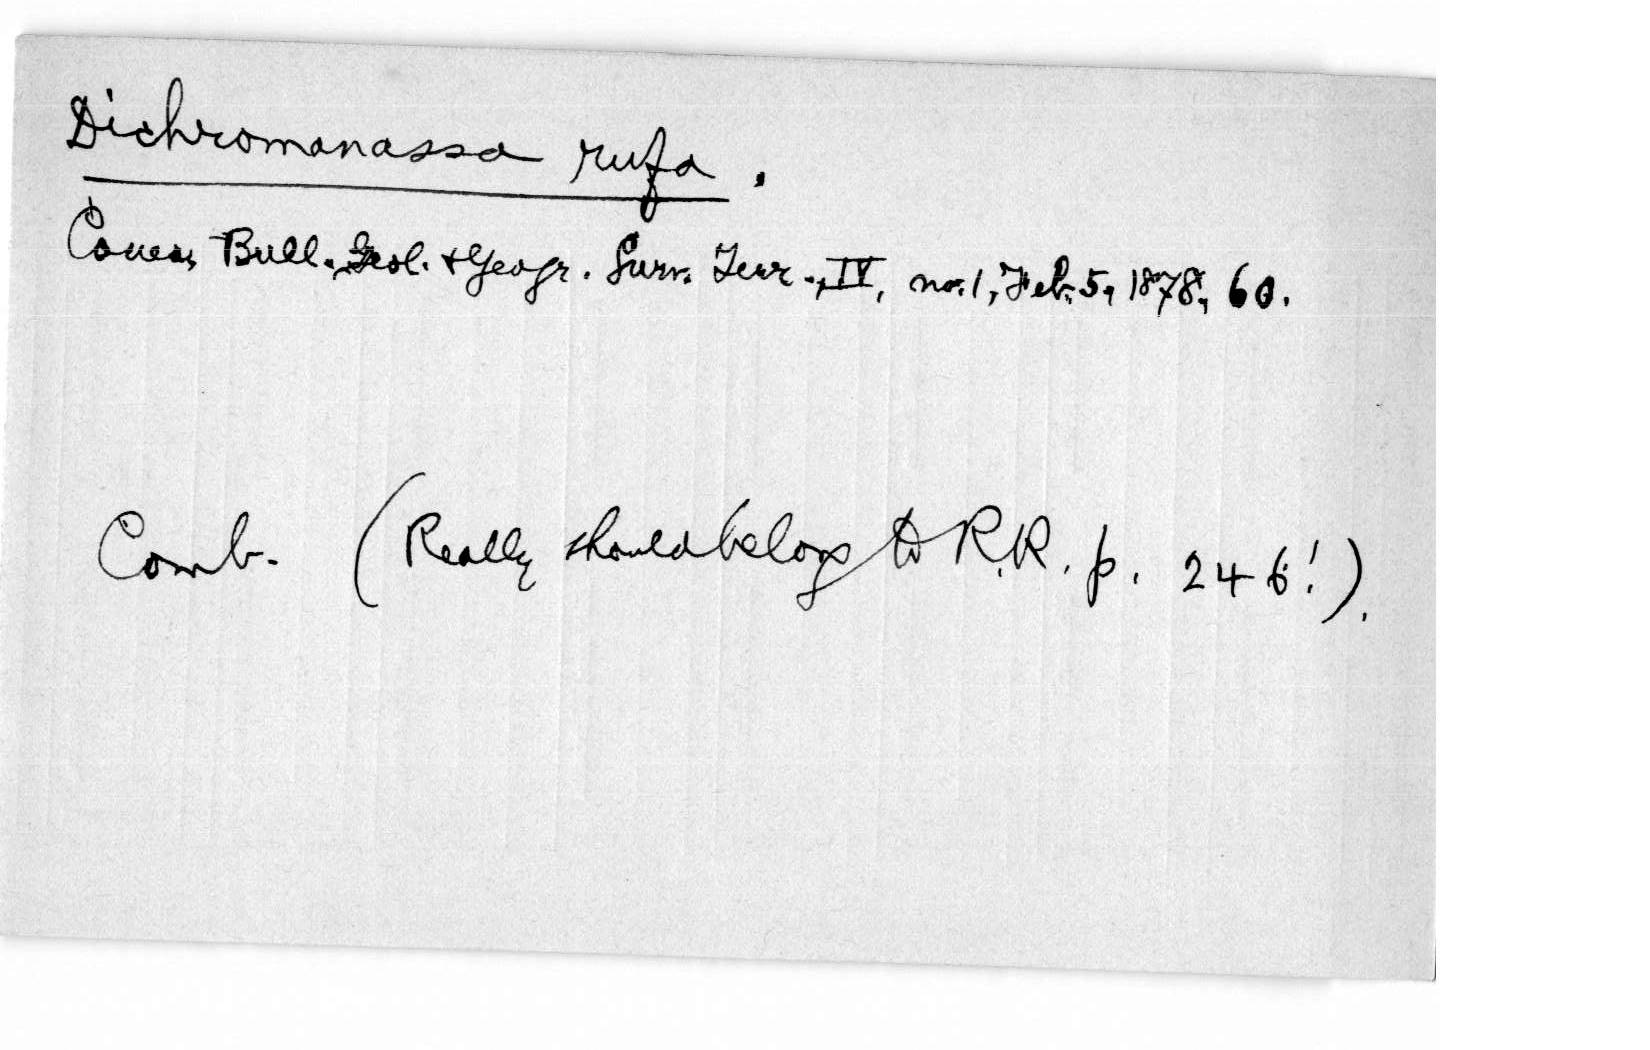 Dichromanassa rufa.
Coues, Bull. Geol. + Geogr. Surv. Terr., IV, no. 1, Feb. 5, 1878, 60.
Comb. (Really should belong to R.R. p. 246!).